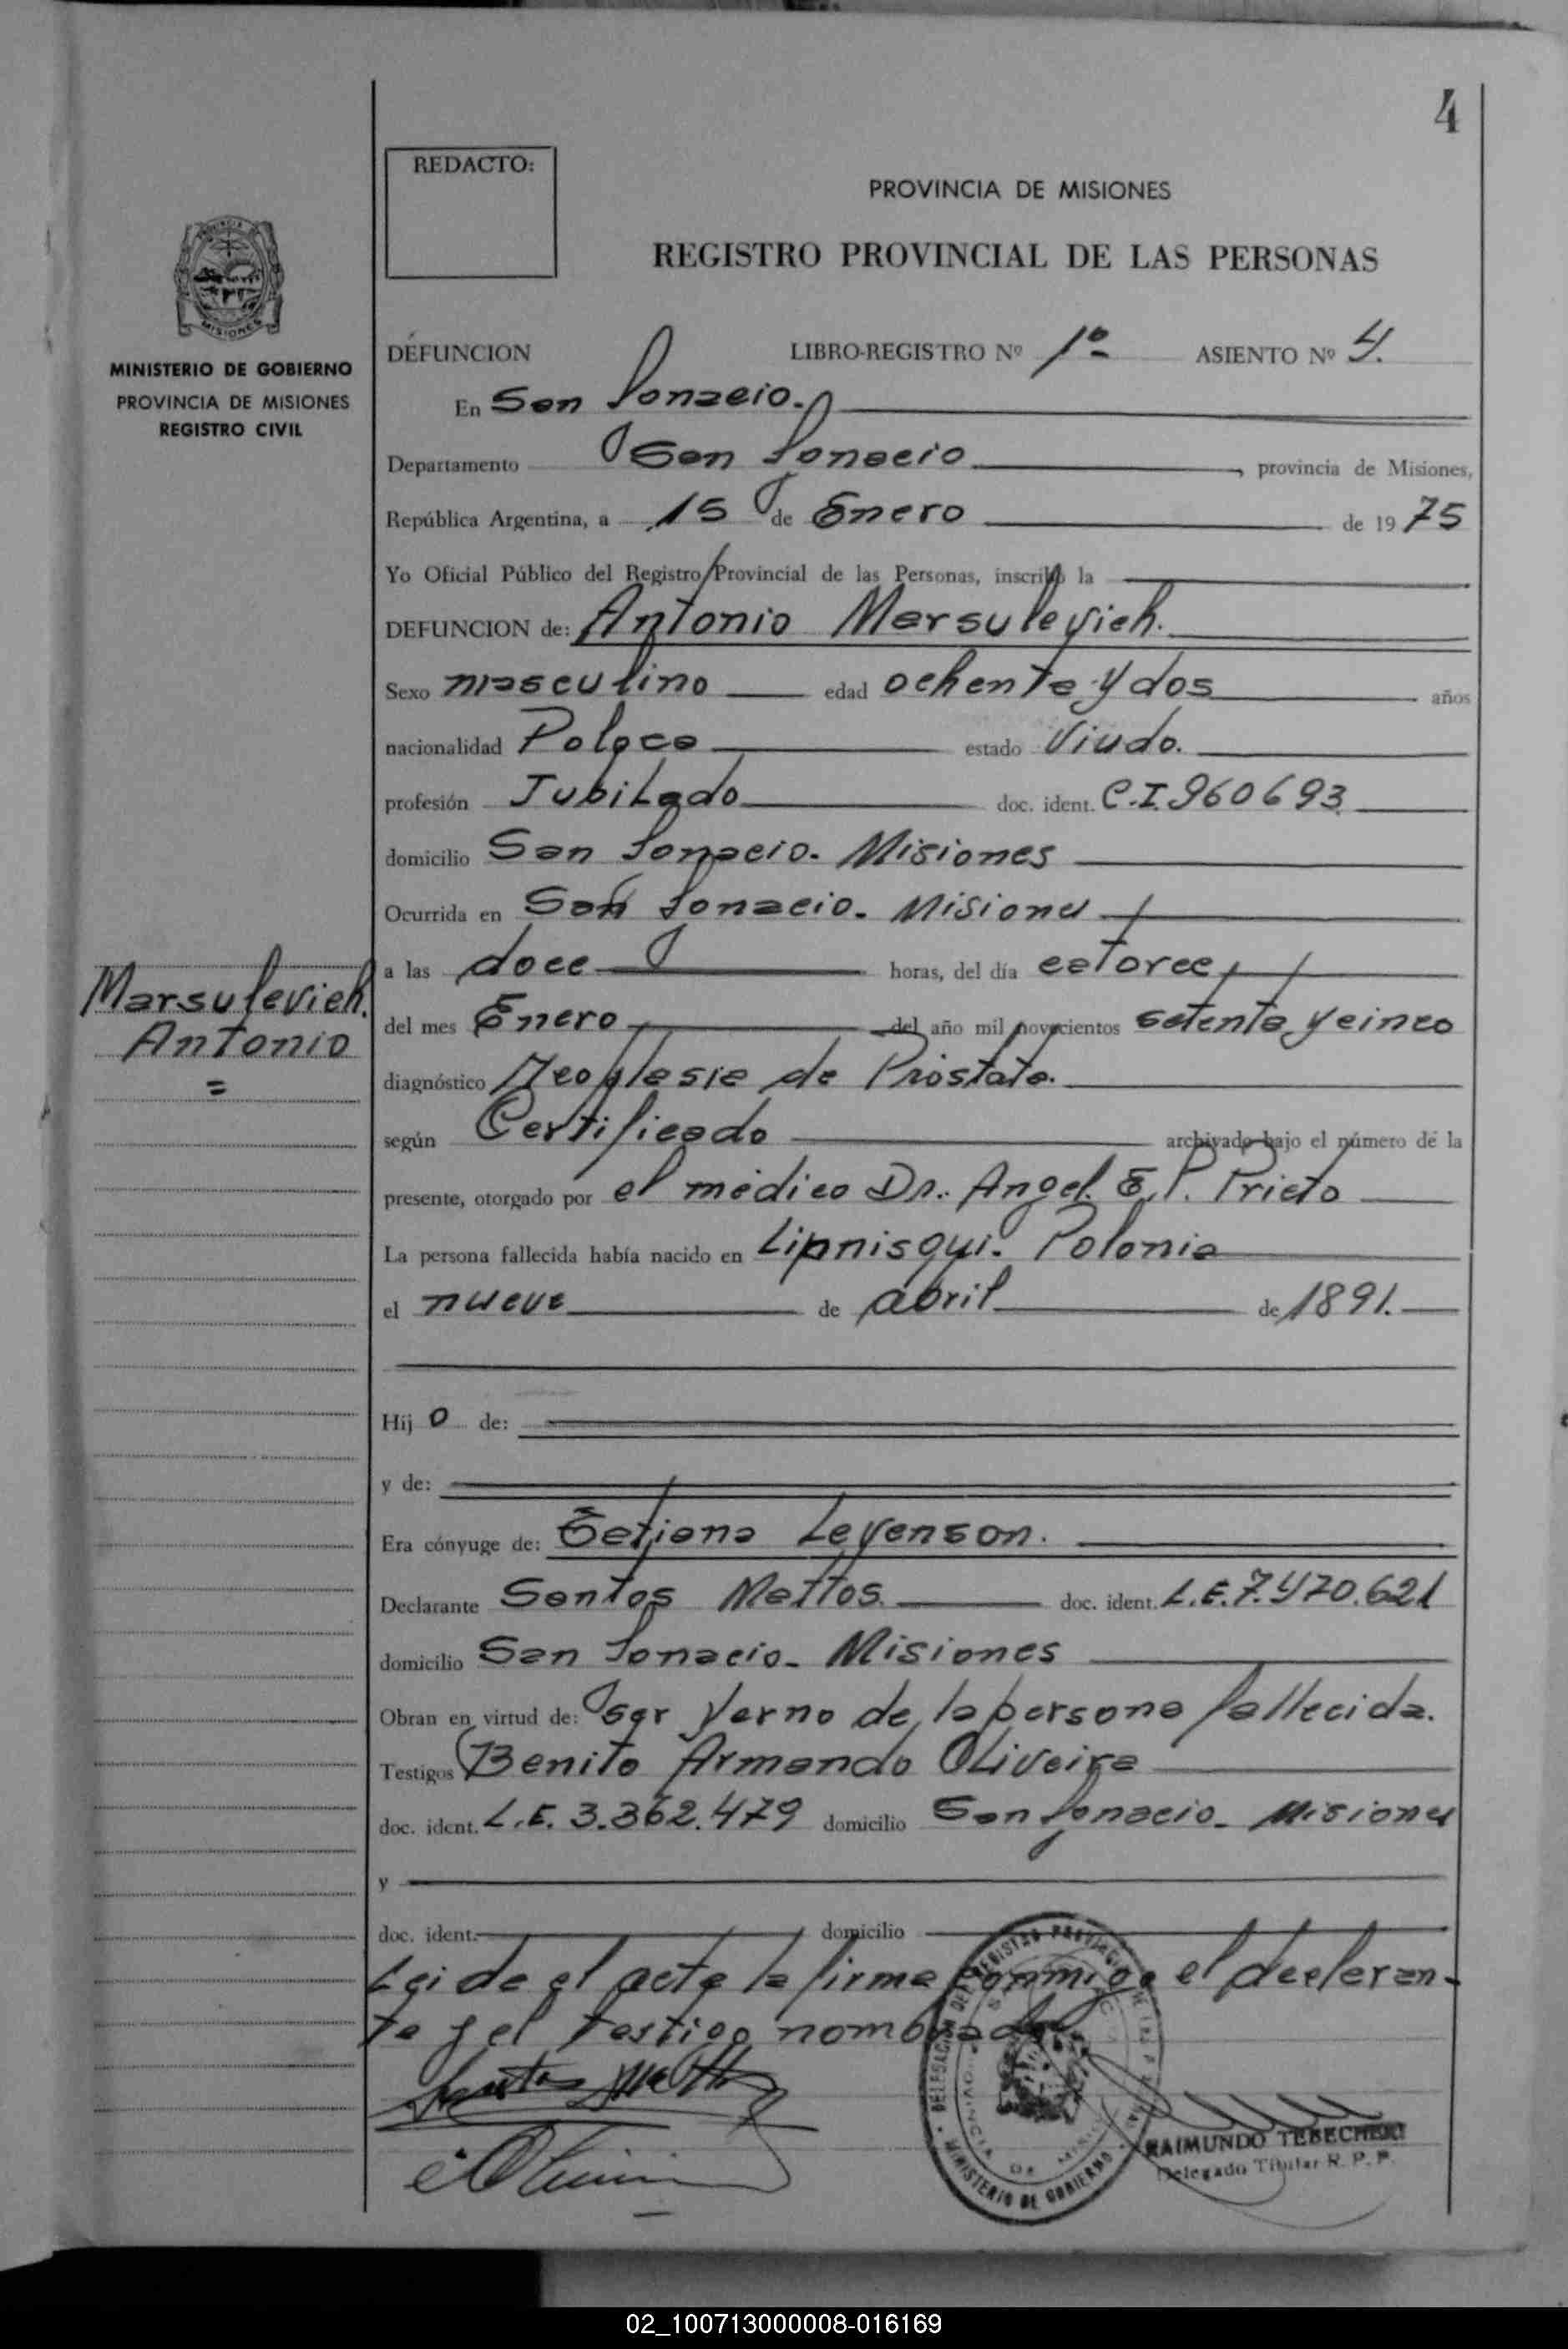 4
REDACTO:
PROVINCIA DE MISIONES
REGISTRO PROVINCIAL DE LAS PERSONAS
MINISTERIO DE GOBIERNO
PROVINCIA DE MISIONES
REGISTRO CIVIL
DEFUNCION LIBRO-REGISTRO Nº 1º ASIENTO Nº 4.
En San Ignacio.
Departamento San Ignacio, provincia de Misiones,
República Argentina, a 15 de Enero de 1975
Yo Oficial Público del Registro Provincial de las Personas, inscribo la
DEFUNCION de: Antonio Marsulevich.
Sexo masculino edad ochenta y dos años
nacionalidad Polaca estado Viudo.
profesión Jubilado doc. ident. C.I. 960693
domicilio San Ignacio. Misiones
Ocurrida en San Ignacio. Misiones
a las doce horas, del día catorce
del mes Enero del año mil novecientos setenta y cinco
Marsulevich.
Antonio
=
diagnóstico Neoplasia de Próstata.
según Certificado archivado bajo el número de la
presente, otorgado por el médico Dr. Angel. E. P. Prieto
La persona fallecida había nacido en Lipnisqui. Polonia
el nueve de abril de 1891.
Hij o de:
y de:
Era cónyuge de: Tetiana Levenson.
Declarante Santos Mattos doc. ident. L.E. 7.470.621
domicilio San Ignacio. Misiones
Obran en virtud de: ser yerno de la persona fallecida.
Testigos Benito Armando Oliveira
doc. ident. L.E. 3.362.479 domicilio San Ignacio. Misiones
y
doc. ident. domicilio
Leida el acta la firma conmigo el declaran-
te y el testigo nombrado
Santos Mattos
DELEGACION DEL REGISTRO
MINISTERIO DE GOBIERNO
RAIMUNDO
Delegado Titular R. P. P.
02_100713000008-016169